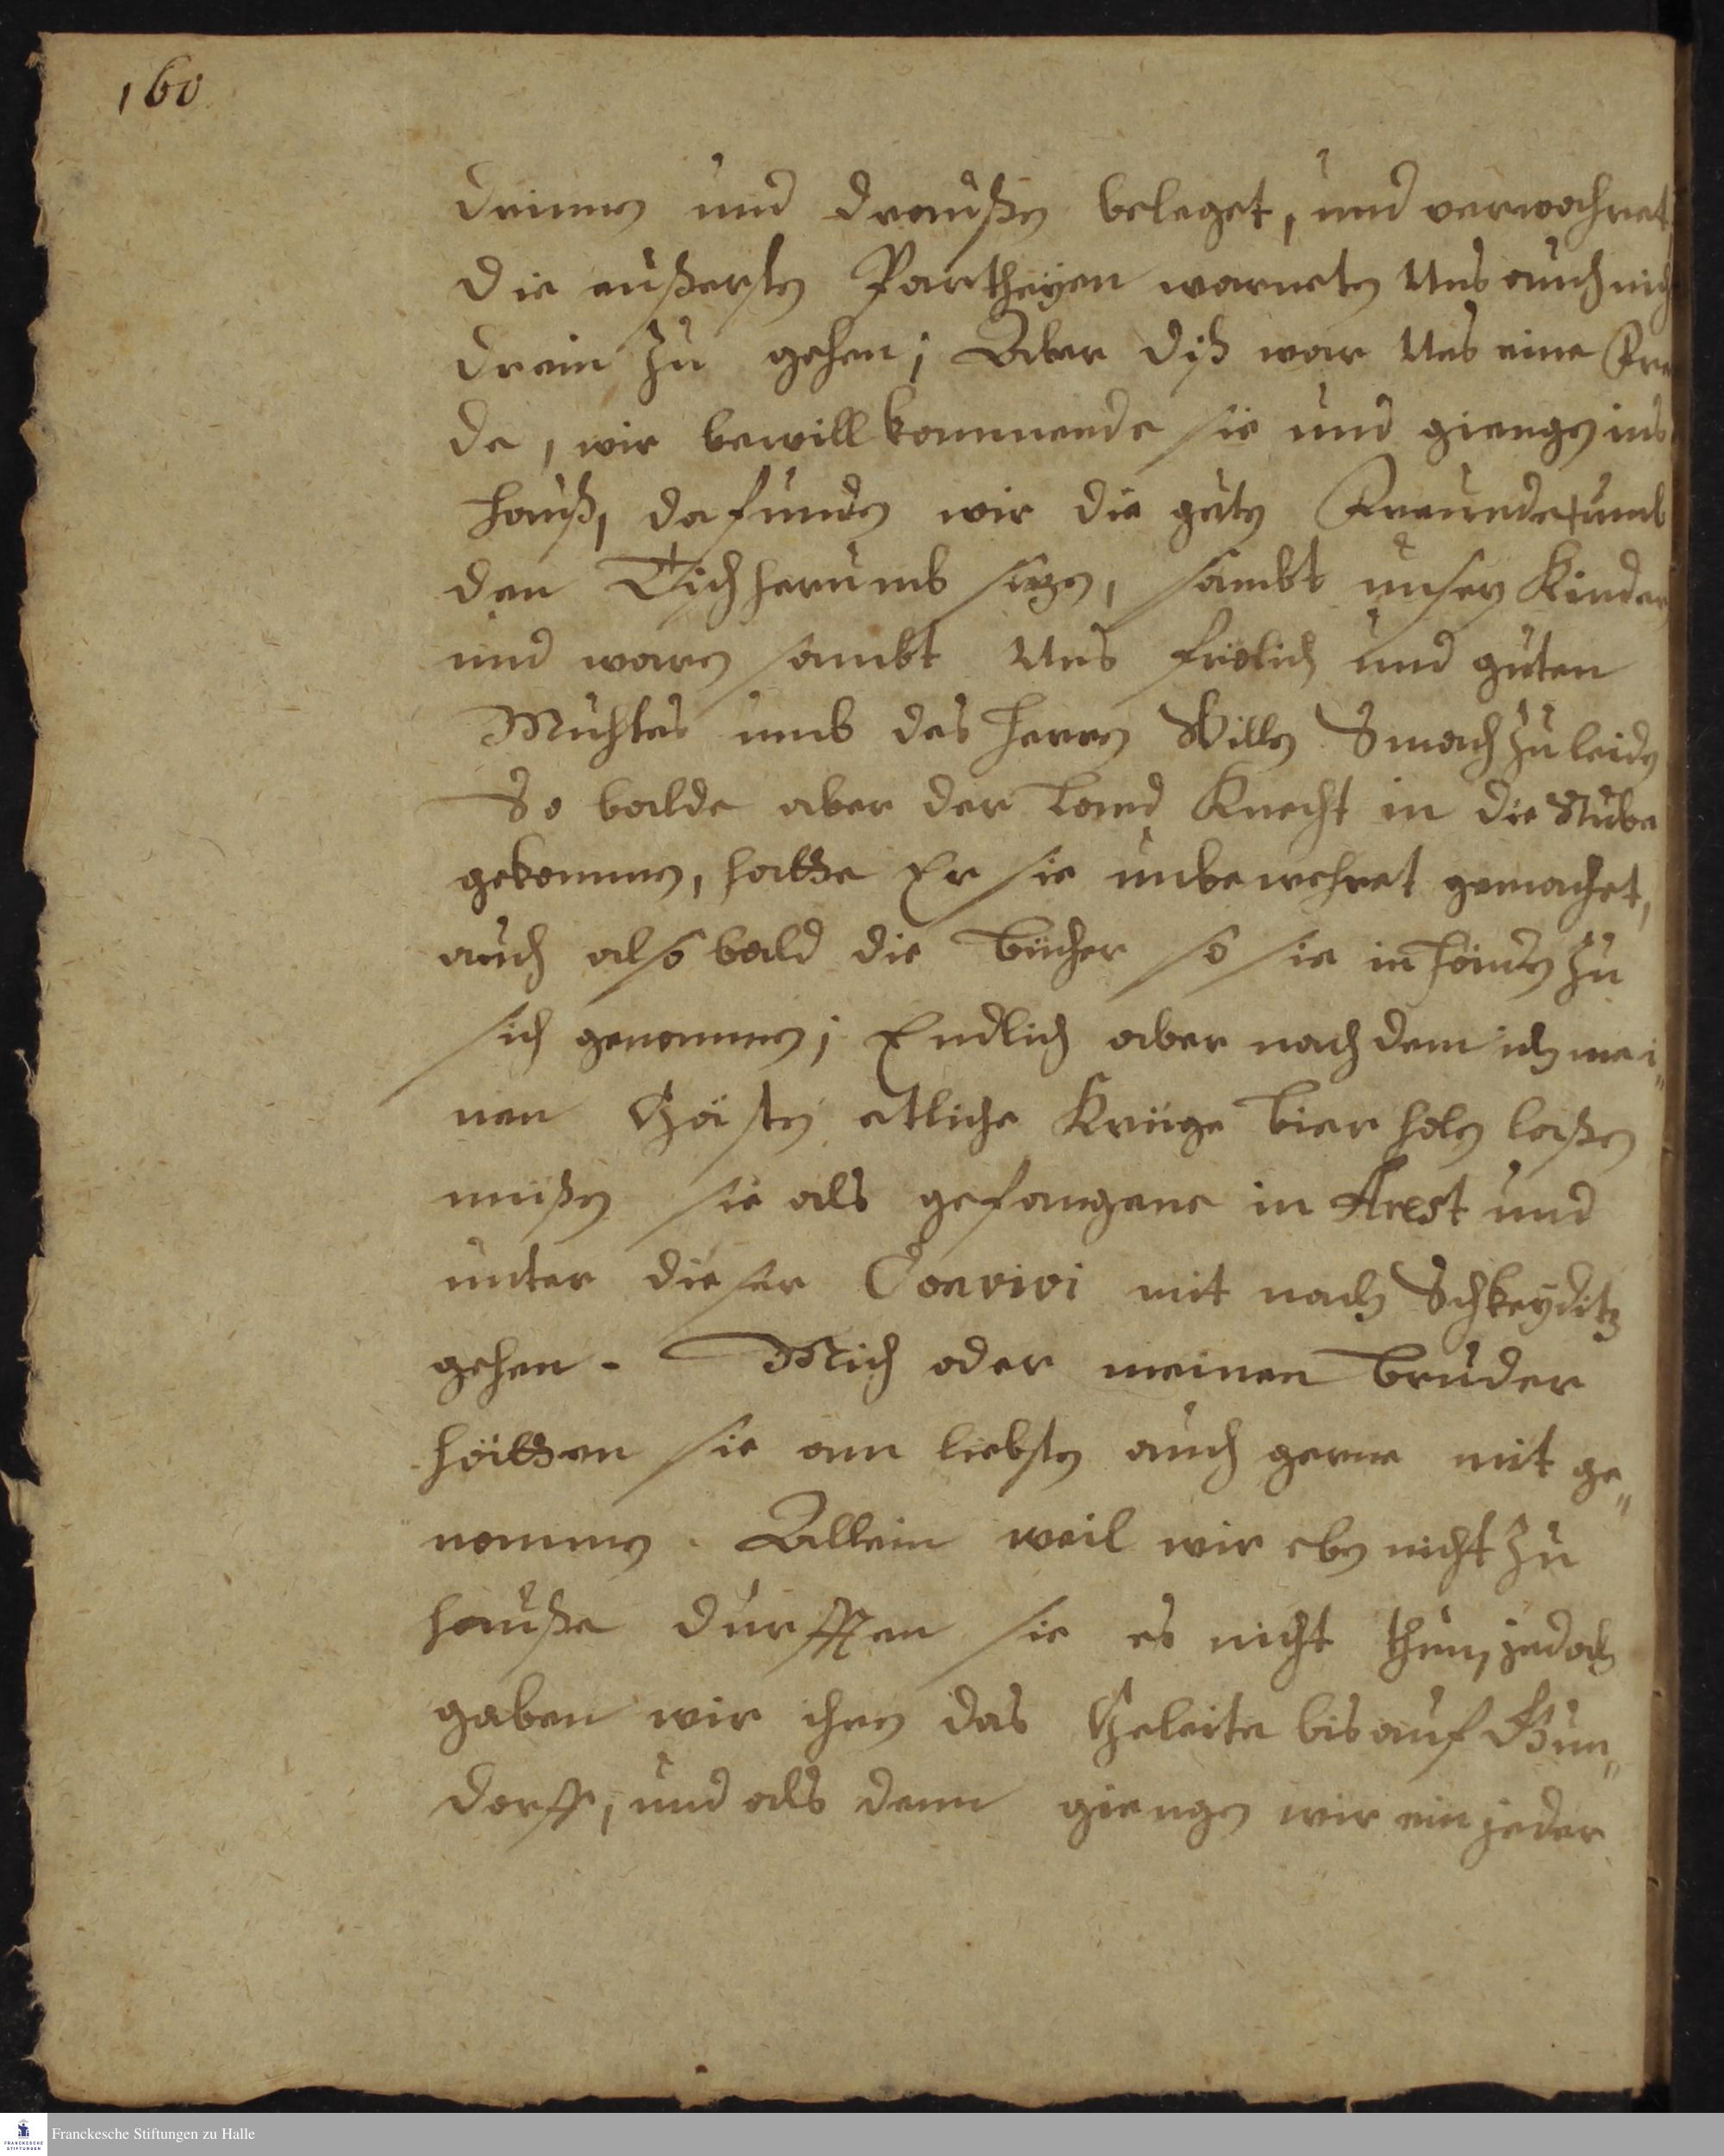 160
drinnen und draußen beleget, und verwahret,
Die eußersten Partheyen warneten Uns auch nich
drein zu gehen; Aber diß war Uns eine Freu
de, wir bewillkommende sie und giengen ins
Hauß, da funden wir die guten Freunde umb
den Tisch herumb sitzen, sambt unsern Kindern
und waren sambt Uns frölich und guten
Muhtes umb des Herren Willen Smach zu leiden
So balde aber der Land Knecht in die Stube
gekommen, hatte Er sie unbewehret gemachet,
auch also bald die Bücher so sie in Händen zu
sich genommen; Endlich aber nach dem ich mei„
nen Gästen etliche Krüge Bier holen laßen
mußen sie als gefangene in Arest und
unter dieser Convivi mit nach Schkeyditz
gehen. Mich oder meinen Bruder
hätten sie am liebsten auch gerne mit ge„
nommen. Allein weil wir eben nicht zu
Hauße durfften sie es nicht thun, jedoch
gaben wir ihnen das Geleite bis auf Gun„
dorff, und als denn giengen wir ein jeder
FRANCKESCHE STIFTUNGEN
Franckesche Stiftungen zu Halle